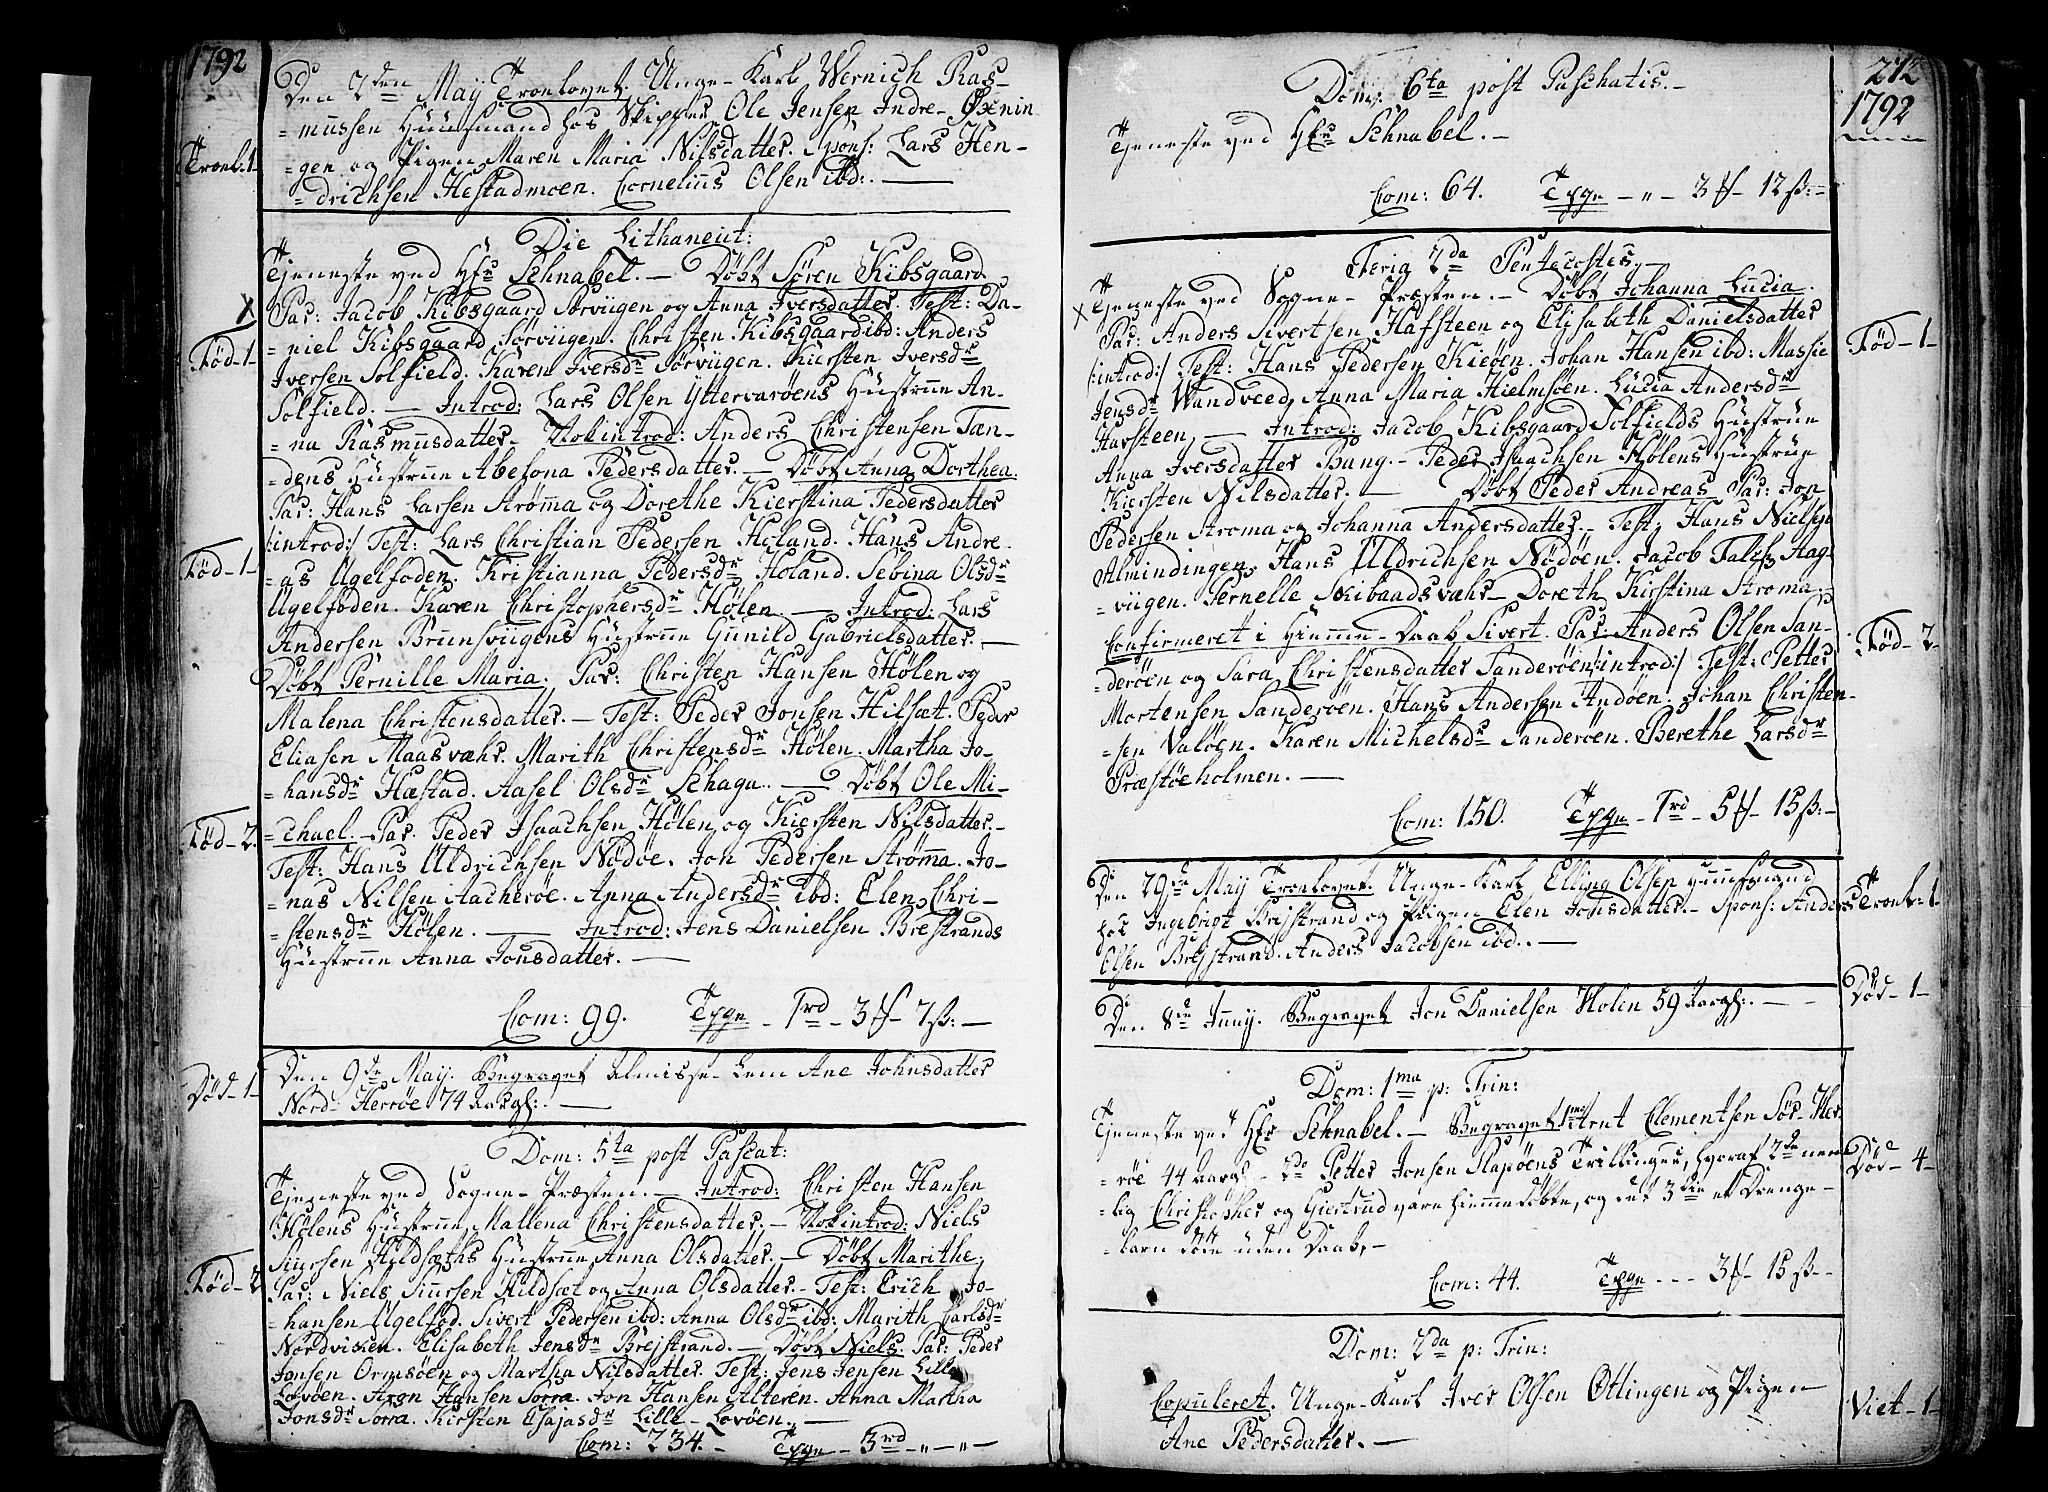 1792
Den 2den Maÿ Troelovet Unge-Karl Wernich Ras-
=mussen Huusmand hos Skipper Ole Jensen Indre-Øxnin
=gen og Pigen Maren Maria Nilsdatter. Spons: Lars Hen-
=drichsen Hestadmoen. Cornelius Olsen ibd:. —
Troel. 1-
Die Lithaneut:
Tjeneste ved Hr Schnabel. — Døbt Søren Kibsgaard.
Par: Jacob Kibsgaard Sørviigen og Anna Iversdatter. Test: Da-
=niel Kibsgaard Sørviigen. Christen Kibsgaard ibd: Anders
Iversen Solfield. Karen Iversdr Sørviigen. Kiersten Iversdr
Solfield. — Introd: Lars Olsen Yttervarøens Hustrue An-
=na Rasmusdatter. Nok introd: Anders Christensen Tan-
=dens Hustrue Abelona Pedersdatter. — Døbt Anna Dorthea.
Par: Hans Larsen Strømma og Dorethe Kierstina Pedersdatter
/:introd:/ Test: Lars Christian Pedersen Holand. Hans Andre-
=as Ugelfoden. Kristianna Pedersdr Holand. Sebina Olsdr
Ugelfoden. Karen Christophersdr Hølen. — Introd: Lars
Andersen Bruunsviigens Hustrue Gunild Gabrielsdatter. —
Døbt Pernille Maria. Par: Christen Hansen Hølen og
Malena Christensdatter. — Test: Peder Jonsen Hilsæt. Peder
Eliasen Maasvahr. Marith Christensdr Hølen. Martha Jo-
=hansdr Hæstad. Aasel Olsdr Schaga. — Døbt Ole Mi-
=chael. Par. Peder Isaachsen Hølen og Kiersten Nilsdatter.
Test: Hans Uldrichsen Nødøe. Jon Pedersen Strømma. Jo-
=nas Nilsen Aacherøe. Anna Andersdr ibd: Elen Chri-
=stensdr Hølen. — Introd: Jens Danielsen Breistrands
Hustrue Anna Jonsdatter. —
Com: 99. Tvge - 1rd - 3 f - 7 ß: —
Fød - 1-
Fød - 1-
Fød - 2.
Den 9de Maÿ. Begravet Almisse-Lem Ane Johnsdatter
Nord-Herrøe 74 Aargl:. —
Død - 1-
Dom: 5ta post Pascat:
Tjeneste ved Sogne-Præsten. — Introd: Christen Hansen
Hølens Hustrue Mallena Christensdatter. — Nok introd: Niels
Siursen Hildsæths Hustrue Anna Olsdatter. — Døbt Marithe.
Par: Niels Siursen Hildsæt og Anna Olsdatter. Test: Erich Jo-
=hansen Ugelfod. Sivert Pedersen ibd: Anna Olsdr ibd: Marith Carlsdr
Nordviken. Elisabeth Jensdr Breistrand. — Døbt Niels. Par: Peder
Jonsen Ormsøen og Martha Nilsdatter. Test: Jens Jensen Lille
Lovøen. Aron Hansen Sorra. Jon Hansen Alteren. Anna Martha
Jonsdr Sorra. Kirsten Esajasdr Lille-Lovøen. —
Com: 234. - Tvge - 3rd - „ - „ -
Fød - 2
272
1792
Dom: 6ta post Paschatis. —
Tjeneste ved Hr Schnabel. —
Com: 64. Tvge - „ - 3 f - 12 ß: -
Feria 2da Pentecostes. —
Tjeneste ved Sogne-Præsten. — Døbt Johanna Lucia.
Par: Anders Sivertsen Hafsteen og Elisabeth Danielsdatter
/:introd:/ Test: Hans Pedersen Kieøen. Johan Hansen ibd: Massie
Jensdr Wandveed, Anna Maria Hielmsøen. Lucia Andersdr
Havsteen. — Introd: Jacob Kibsgaard Solfields Hustrue
Anna Iversdatter Bang. — Peder Isaachsen Hølens Hustrue
Kiersten Nilsdatter. — Døbt Peder Andreas Par: Jon
Pedersen Stroma og Johanna Andersdatter. — Test: Hans Nielsen
Almindingen, Hans Uldrichsen Nødøen. Jacob Falch Aag-
=viigen. Pernelle Skibaadsvahr. Doreth Kirstina Stroma.
Confirmeret i Hiemme-Daab Sivert. Par: Anders Olsen San-
=derøen og Sara Christensdatter Sanderøen /:introd:/ Test: Petter
Mortensen Sanderøen. Hans Andersen Andøen. Johan Christen-
=sen Valøen. Karen Michelsdr Sanderøen. Berethe Larsdr
Præstøeholmen. —
Com: 150. Tvge - 1rd - 5 f - 15 ß: -
Fød - 1-
Fød - 2-
Den 29de Maÿ Troelovet. Unge-Karl Elling Olsen Huusmand
hos Ingebrigt Breistrand og Pigen Elen Jonsdatter. — Spons: Anders
Olsen Breistrand. Anders Jacobsen ibd:. —
Troel - 1-
Den 8de Junÿ. Begravet Jon Danielsen Holen 59 Aargl:. —
Død - 1-
Dom: 1ma p: Trin:
Tjeneste ved Hr Schnabel. — Begravet 1mo Arent Clementsen Sør-Her-
=røe 44 Aargl. 2do Petter Jonsen Rapøens Trillinger, hvoraf 2de nem-
=lig Christopher og Giertrud vare hiemmedøbte, og det 3die et Drenge-
=barn døde uden Daab, —
Com: 44. Tvge - - - 3 f - 15 ß -
Død - 4-
Dom: 2da p: Trin:
Copuleret. Unge-Karl Iver Olsen Ottingen og Pigen
Ane Pedersdatter. —
Viet - 1-